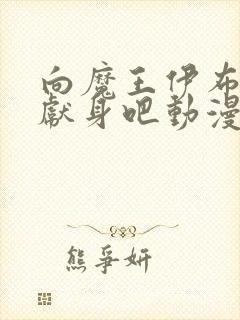 向魔王伊布
獻身吧動漫
熊爭妍